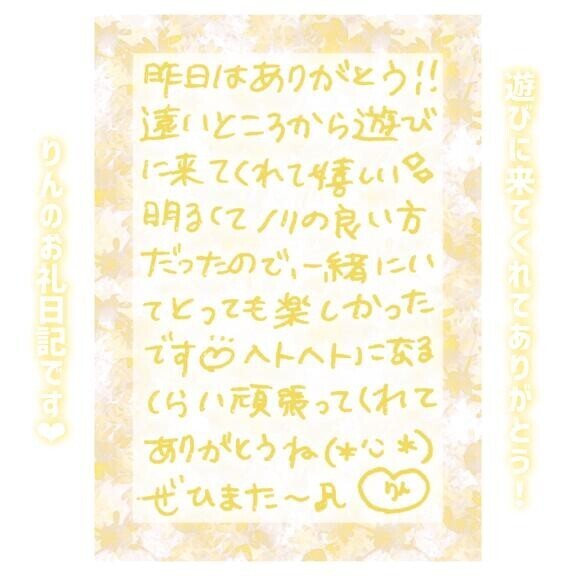 遊びに来てくれてありがとう！
昨日はありがとう!!
遠いところから遊び
に来てくれて嬉しい
明るくてノリの良い方
だったので、一緒にい
てとっても楽しかった
です♡ヘトヘトになる
くらい頑張ってくれて
ありがとうね(*'ᵕ'*)
ぜひまた〜♬ りん
りんのお礼日記です❤